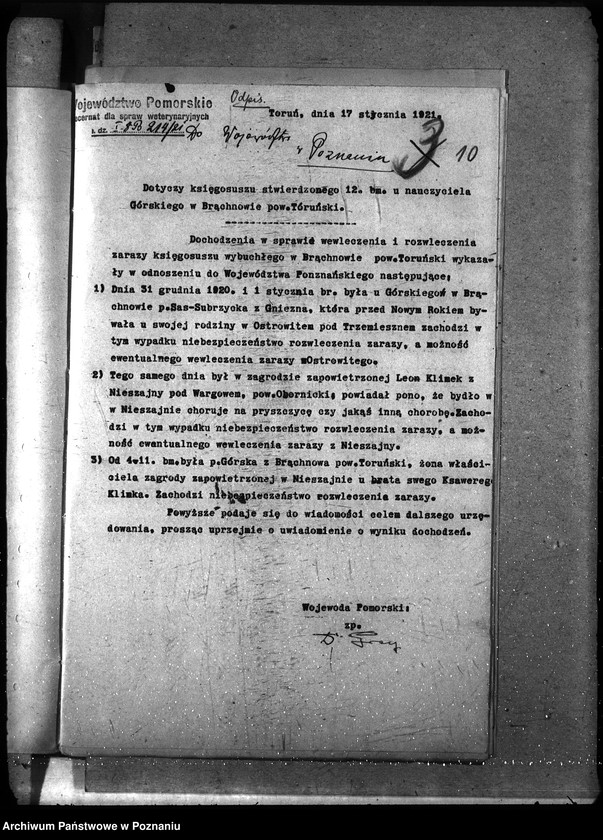 Województwo Pomorskie
Decernat dla spraw weterynaryjnych
L. dz. I 5 Pb 214/21.
Odpis.
Toruń, dnia 17 stycznia 1921.
Do Województwa
w Poznaniu
3
10
Dotyczy księgosuszu stwierdzonego 12. bm. u nauczyciela
Górskiego w Brąchnowie pow.Toruński.
Dochodzenia w sprawie wewleczenia i rozwleczenia
zarazy księgosuszu wybuchłego w Brąchnowie pow.Toruński wykaza-
ły w odnoszeniu do Województwa Ponznańskiego następujące;
1) Dnia 31 grudnia 1920. i 1 stycznia br. była u Górskiegow w Brą-
chnowie p.Sas-Subrzycka z Gniezna, która przed Nowym Rokiem by-
wała u swojej rodziny w Ostrowitem pod Trzemiesznem zachodzi w
tym wypadku niebezpieczeństwo rozwleczenia zarazy, a możność
ewentualnego wewleczenia zarazy zOstrowitego.
2) Tego samego dnia był w zagrodzie zapowietrzonej Leon Klimek z
Nieszajny pod Wargowem, pow.Obornicki; powiadał pono, że bydło w
w Nieszajnie choruje na pryszczycę czy jakąś inną chorobę.Zacho-
dzi w tym wypadku niebezpieczeństwo rozwleczenia zarazy, a moż-
ność ewantualnego wewleczenia zarazy z Nieszajny.
3) Od 4-11. bm.była p.Górska z Brąchnowa pow.Toruński, żona właści-
ciela zagrody zapowietrzonej w Nieszajnie u brata swego Ksawereg
Klimka. Zachodzi niebezpieczeństwo rozwleczenia zarazy.
Powyższe podaje się do wiadomości celem dalszego urzę-
dowania, prosząc uprzejmie o uwiadomienie o wyniku dochodzeń.
Wojewoda Pomorski:
zp.
Dr.
Archiwum Państwowe w Poznaniu